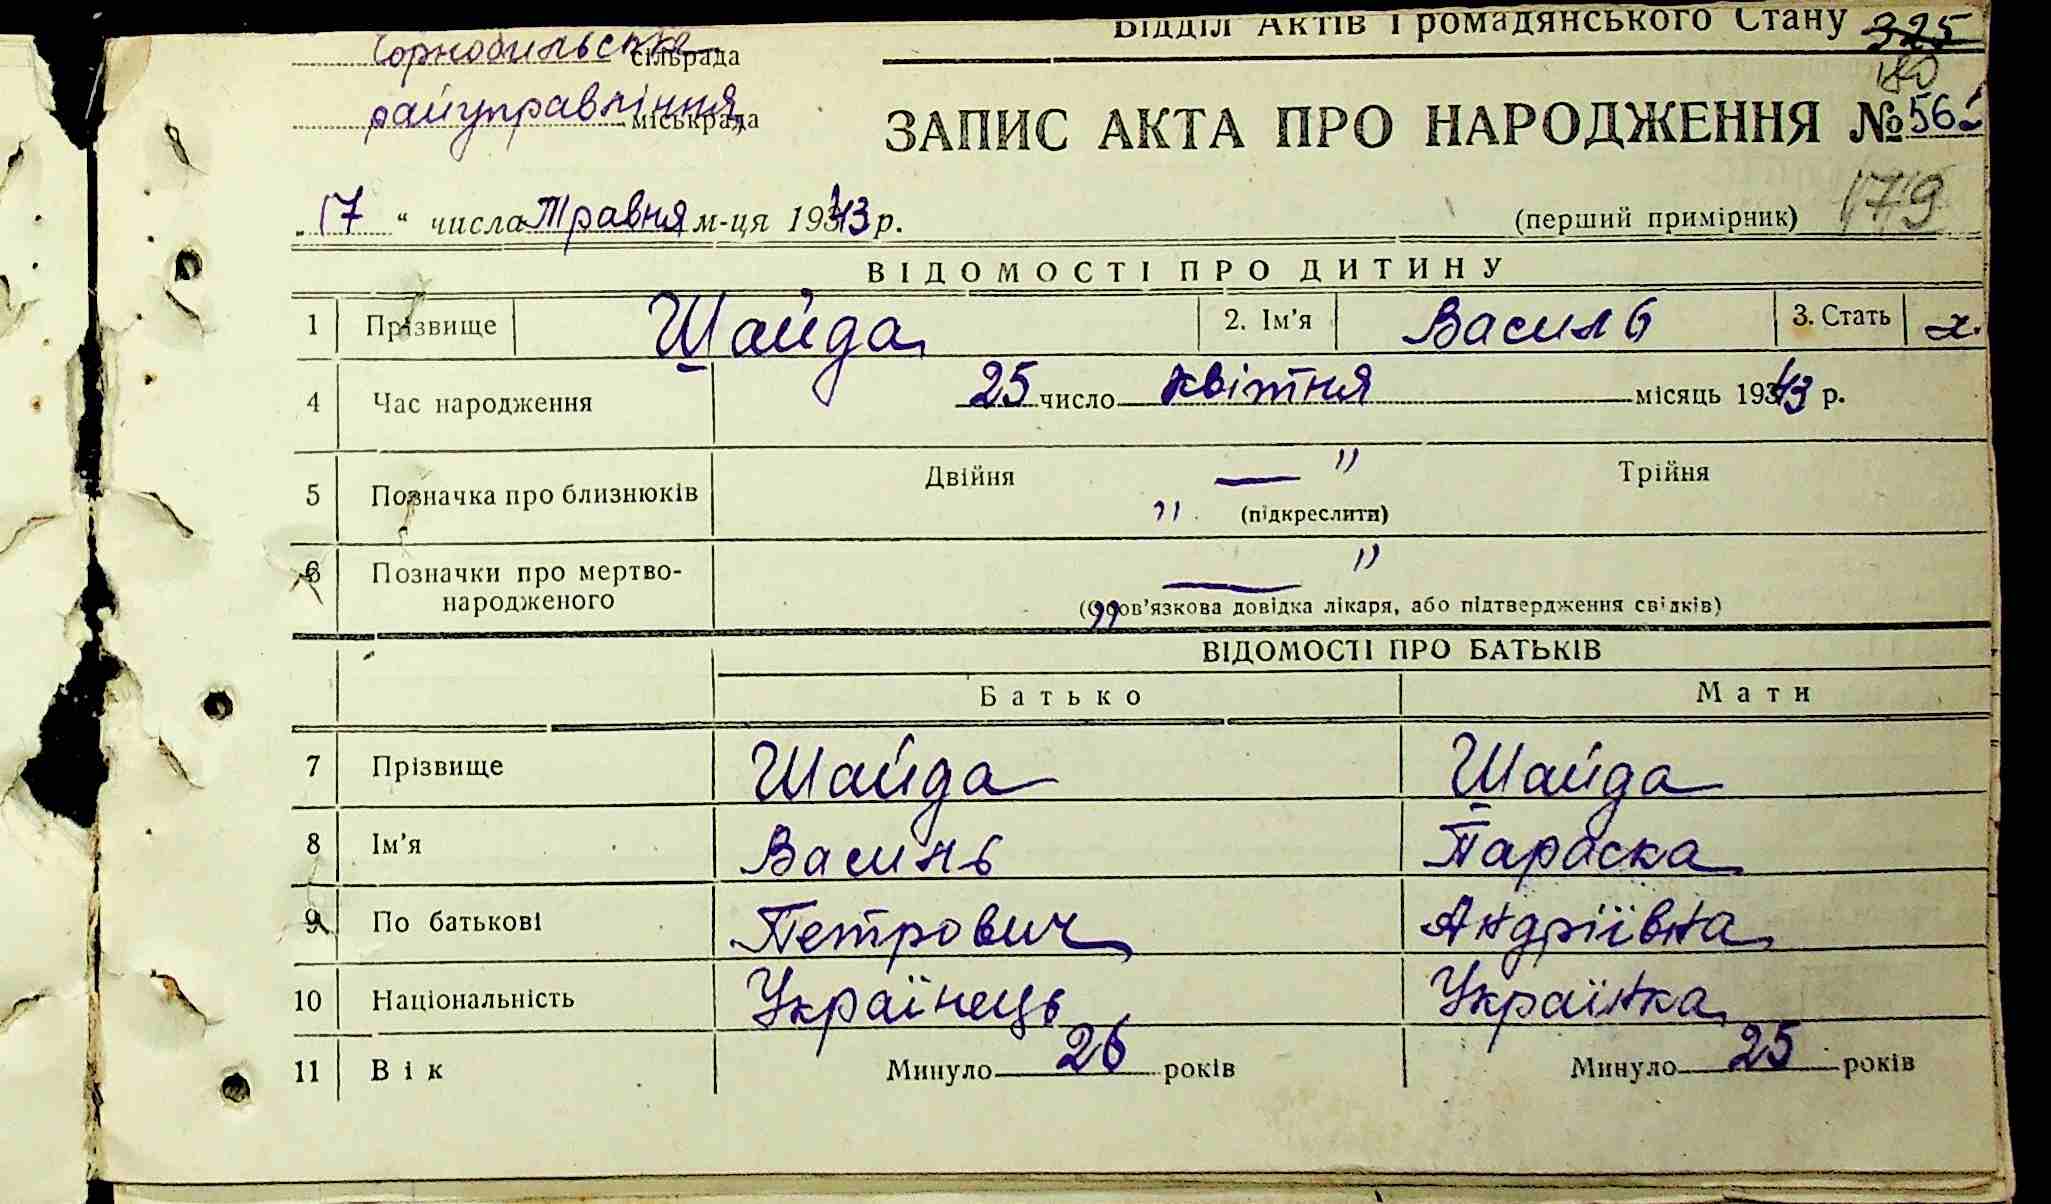 Відділ Актів Громадянського Стану 325
Чорнобильське сільрада
180
райуправління, міськрада
ЗАПИС АКТА ПРО НАРОДЖЕННЯ № 56
179
„17“ числа Травня м-ця 1943 р.
(перший примірник)
ВІДОМОСТІ ПРО ДИТИНУ
1 Прізвище Шайда 2. Ім’я Василь 3. Стать х.
4 Час народження 25 число квітня місяць 1943 р.
5 Позначка про близнюків Двійня — " Трійня
" (підкреслити)
6 Позначки про мертво-
народженого — "
(Обов’язкова довідка лікаря, або підтвердження свідків)
ВІДОМОСТІ ПРО БАТЬКІВ
Батько Мати
7 Прізвище Шайда Шайда
8 Ім’я Василь Параска
9 По батькові Петрович Андріївна
10 Національність Українець Українка
11 Вік Минуло 26 років Минуло 25 років